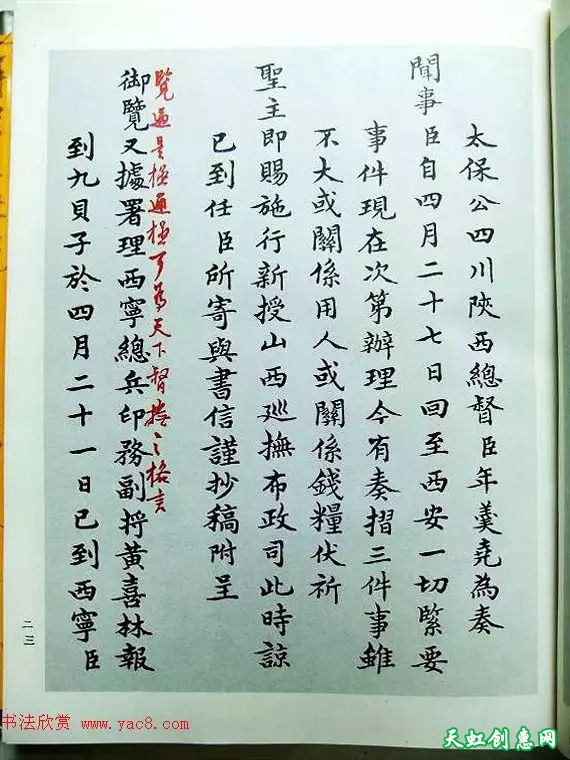 太保公四川陝西總督臣年羹堯為奏
聞事臣自四月二十七日回至西安一切緊要
事件現在次第辦理今有奏摺三件事雖
不大或關係用人或關係錢糧伏祈
聖主即賜施行新授山西巡撫布政司此時諒
已到任臣所寄與書信謹抄稿附呈
覽過是極通極可為天下督撫之格言
御覽又據署理西寧總兵印務副將黃喜林報
到九貝子於四月二十一日已到西寧臣
二三
书法欣赏 www.yac8.com
天虹创惠网